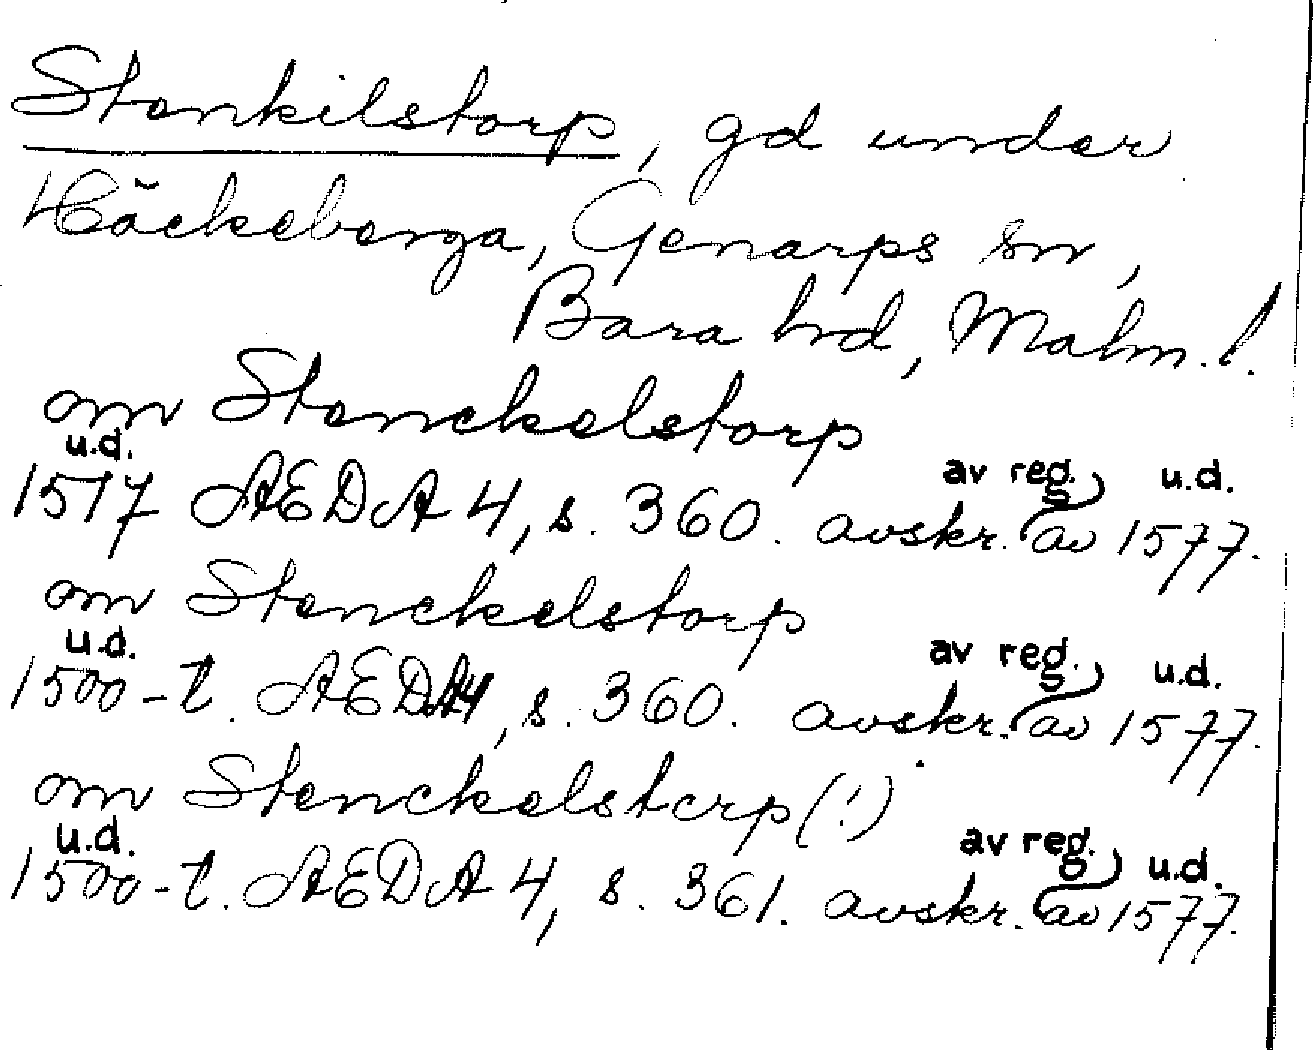 Stenkilstorp, gd under
Häckeberga, Genarps sn,
Bara hd, Malm. l.
om Stenckelstorp
u.d. av reg. u.d.
1517 AEDA 4, s. 360. avskr. av 1577.
om Stenckelstorp
u.d. av reg. u.d.
1500-t. AEDA4, s. 360. avskr. av 1577.
om Stenckelstcrp (!)
u.d. av reg. u.d.
1500-t. AEDA 4, s. 361. avskr. av 1577.